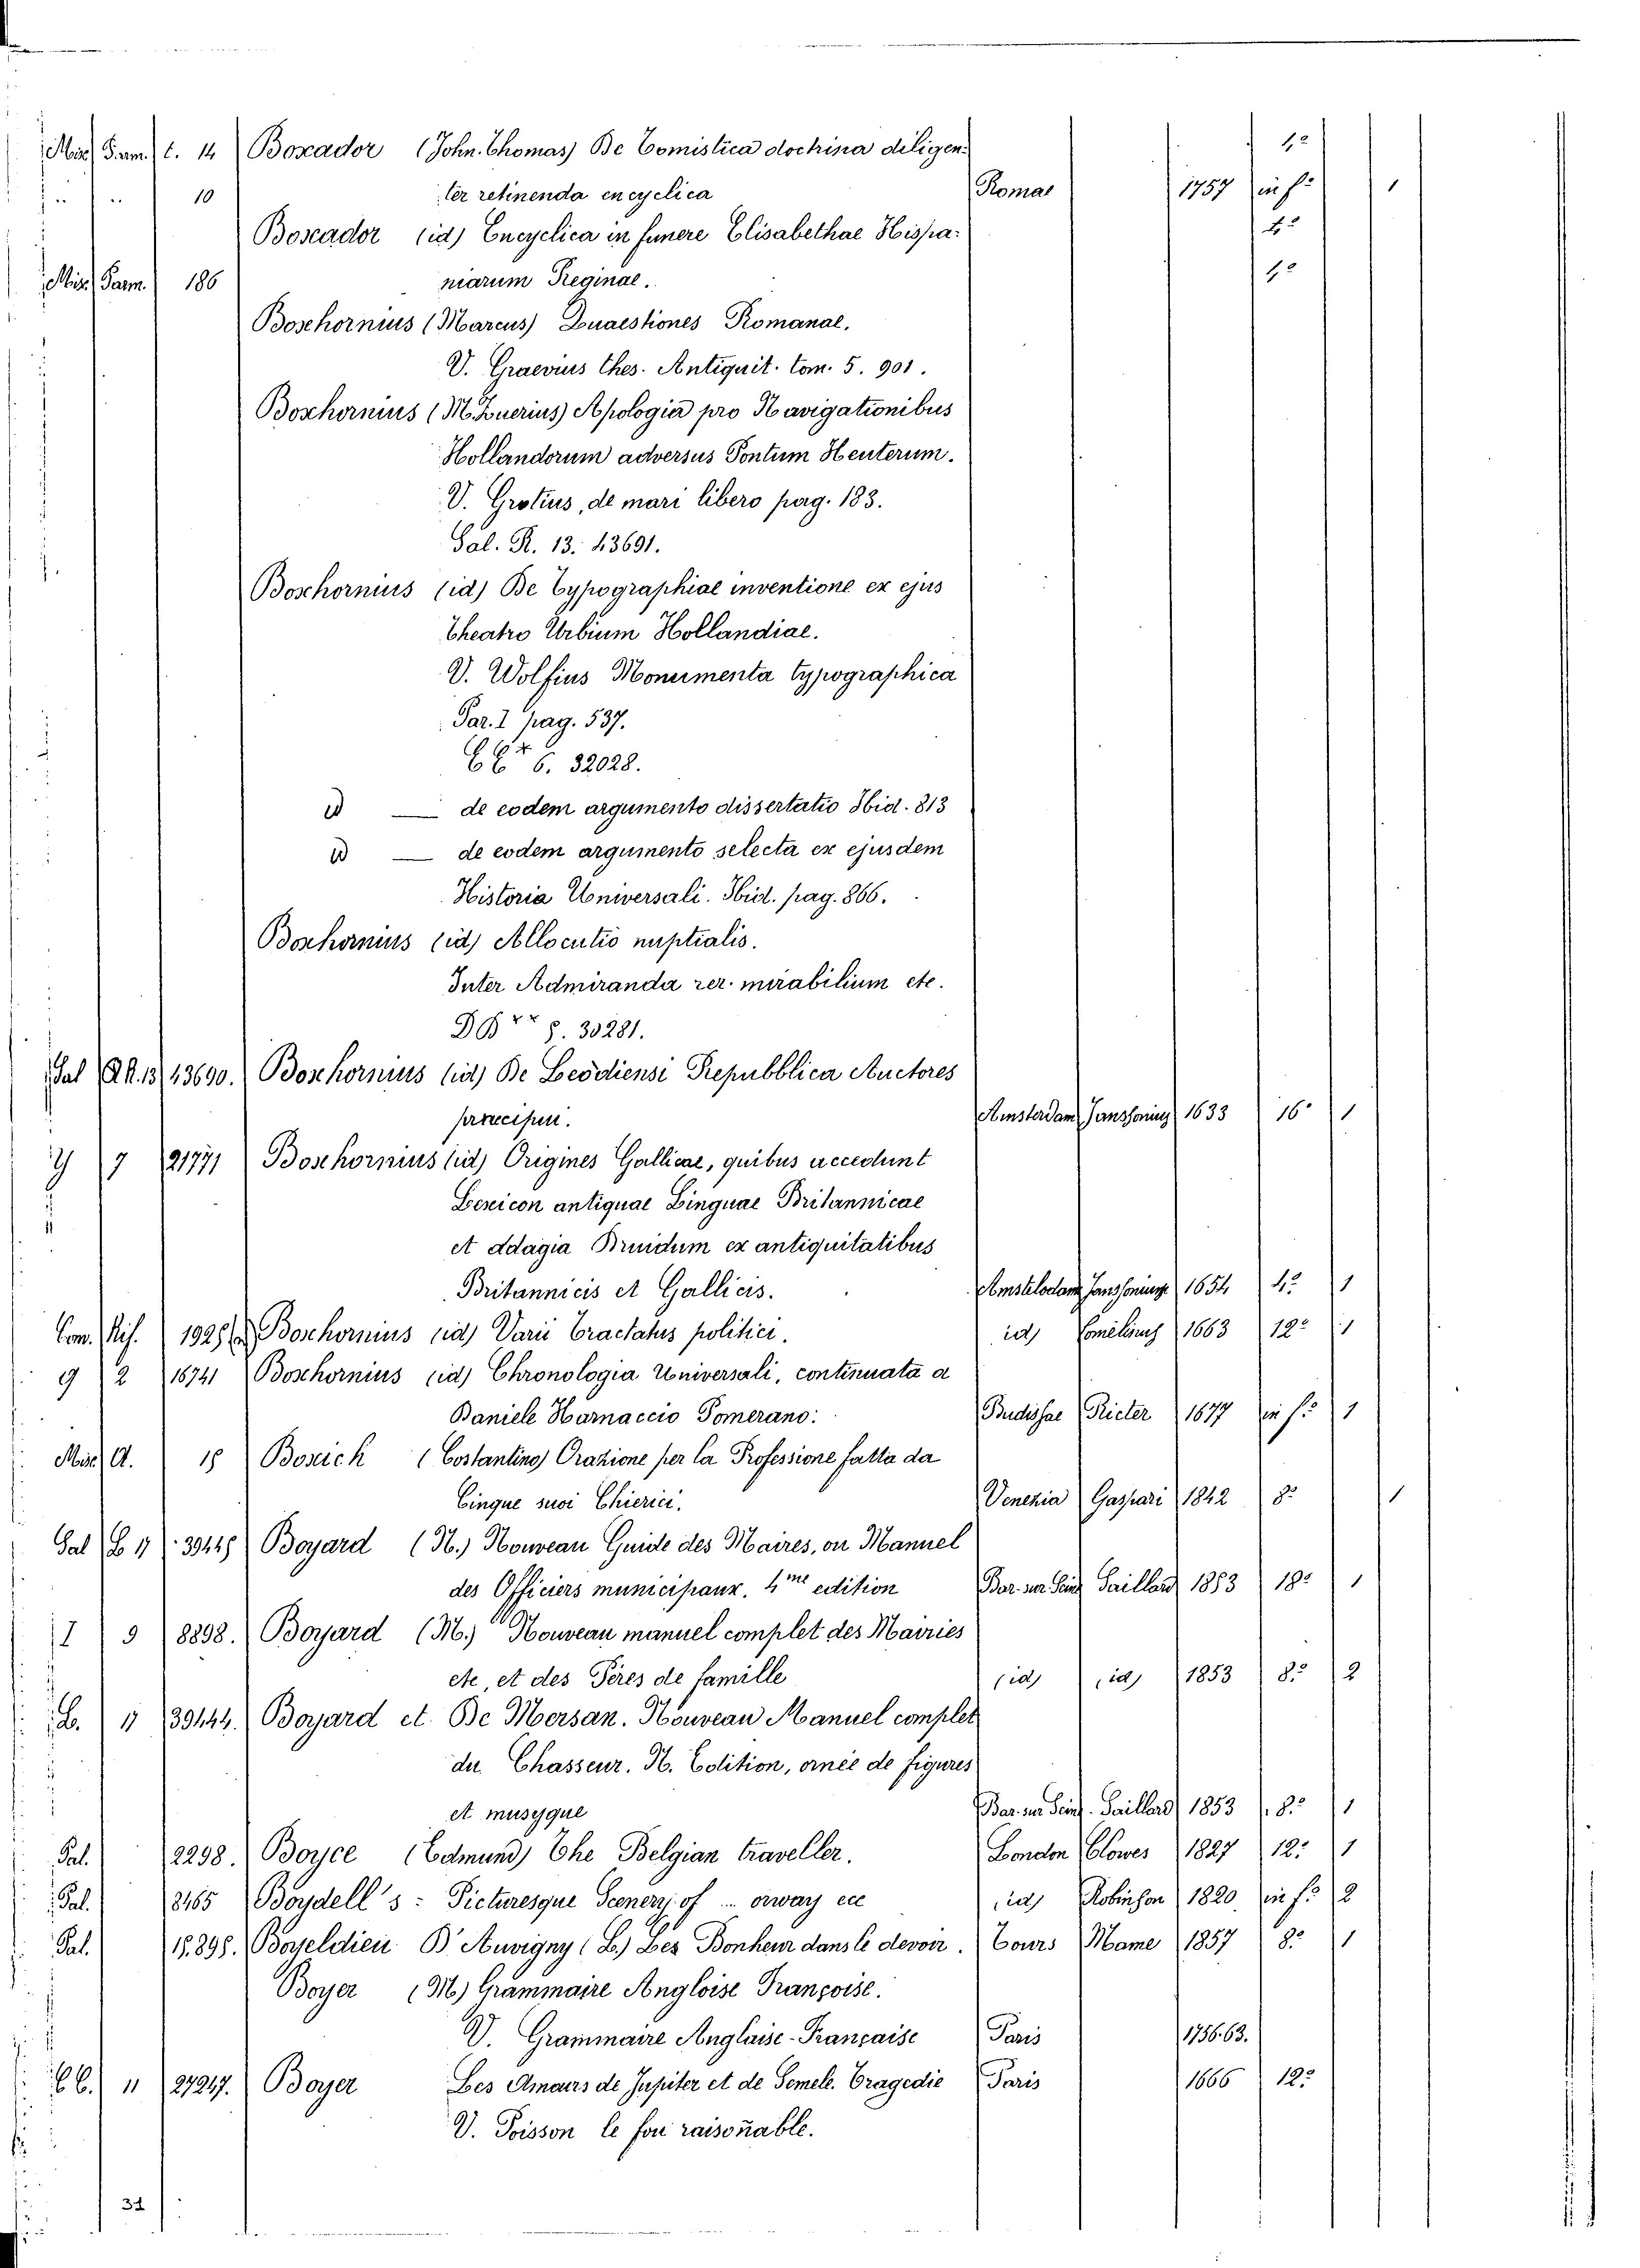 Mis. Parm. t. 14 Boxador (John. Thomas) De Tomistica doctrina diligen: 4º
10 ter retinenda encyclica Romae 1757 in fº 1
Boxador (id) Encyclica in funere Elisabethae Hispa: 4º
Mis. Parm. 186 niarum Reginae. 4º
Boxhornius (Marcus) Quaestiones Romanae.
V. Graevius thes. Antiquit. tom. 5. 901.
Boxhornius (M. Zuerius) Apologia pro Navigationibus
Hollandorum adversus Pontum Heuterum.
V. Grotius, de mari libero pag. 183.
Sal. R. 13. 43691.
Boxhornius (id) De Typographiae inventione ex ejus
Theatro Urbium Hollandiae.
V. Wolfius Monumenta typographica
Par. I pag. 537.
6. 32028.
id — de eodem argumento dissertatio Ibid. 813
id — de eodem argumento selecta ex ejusdem
Historia Universali. Ibid. pag. 866.
Boxhornius (id) Allocutio nuptialis.
Inter Admiranda rer. mirabilium etc.
8. 30281.
Sal R. 13 43690. Boxhornius (id) De Leodiensi Repubblica Auctores
praecipui. Amsterdam Janssonius 1633 16º 1
Y 7 21771 Boxhornius (id) Origines Gallicae, quibus accedunt
Lexicon antiquae Linguae Britannicae
et Adagia Druidum ex antiquitatibus
Britannicis et Gallicis. Amstelodam Janssonius 1654 4º 1
Com. Mis. 1925 Boxhornius (id) Varii Tractatus politici. id) Comelinus 1663 12º 1
9 2 16741 Boxhornius (id) Chronologia Universali, continuata a
Daniele Harnaccio Pomerano: Budissae Richter 1677 in fº 1
Mis. A. 18 Boxich (Costantino) Orazione per la Professione fatta da
Cinque suoi Chierici. Venezia Gaspari 1842 8º 1
Sal B 11 39445 Boyard (N.) Nouveau Guide des Maires, ou Manuel
des Officiers municipaux. 4me edition Bar-sur Seine Saillard 1853 18º 1
I 9 8898. Boyard (M.) Nouveau manuel complet des Mairies
etc, et des Péres de famille (id) (id) 1853 8º 2
B. 11 39444. Boyard et De Mersan. Nouveau Manuel complet
du Chasseur. N. Edition, ornée de figures
et musyque Bar. sur Seine. Saillard 1853 8º 1
Pal. 2298. Boyce (Edmund) The Belgian traveller. London Clowes 1827 12º 1
Pal. 8465 Boydell's: Picturesque Scenery of ... orway ecc id) Robinson 1820 in fº 2
Pal. 15.898. Boyeldieu D'Auvigny (L.) Les Bonheur dans le devoir. Tours Mame 1857 8º 1
Boyer (M) Grammaire Angloise Françoise.
V. Grammaire Anglaise-Française Paris 1756.63.
11 27217. Boyer Les Amours de Jupiter et de Semele. Tragedie Paris 1666 12º
V. Poisson le fou raisoñable.
31